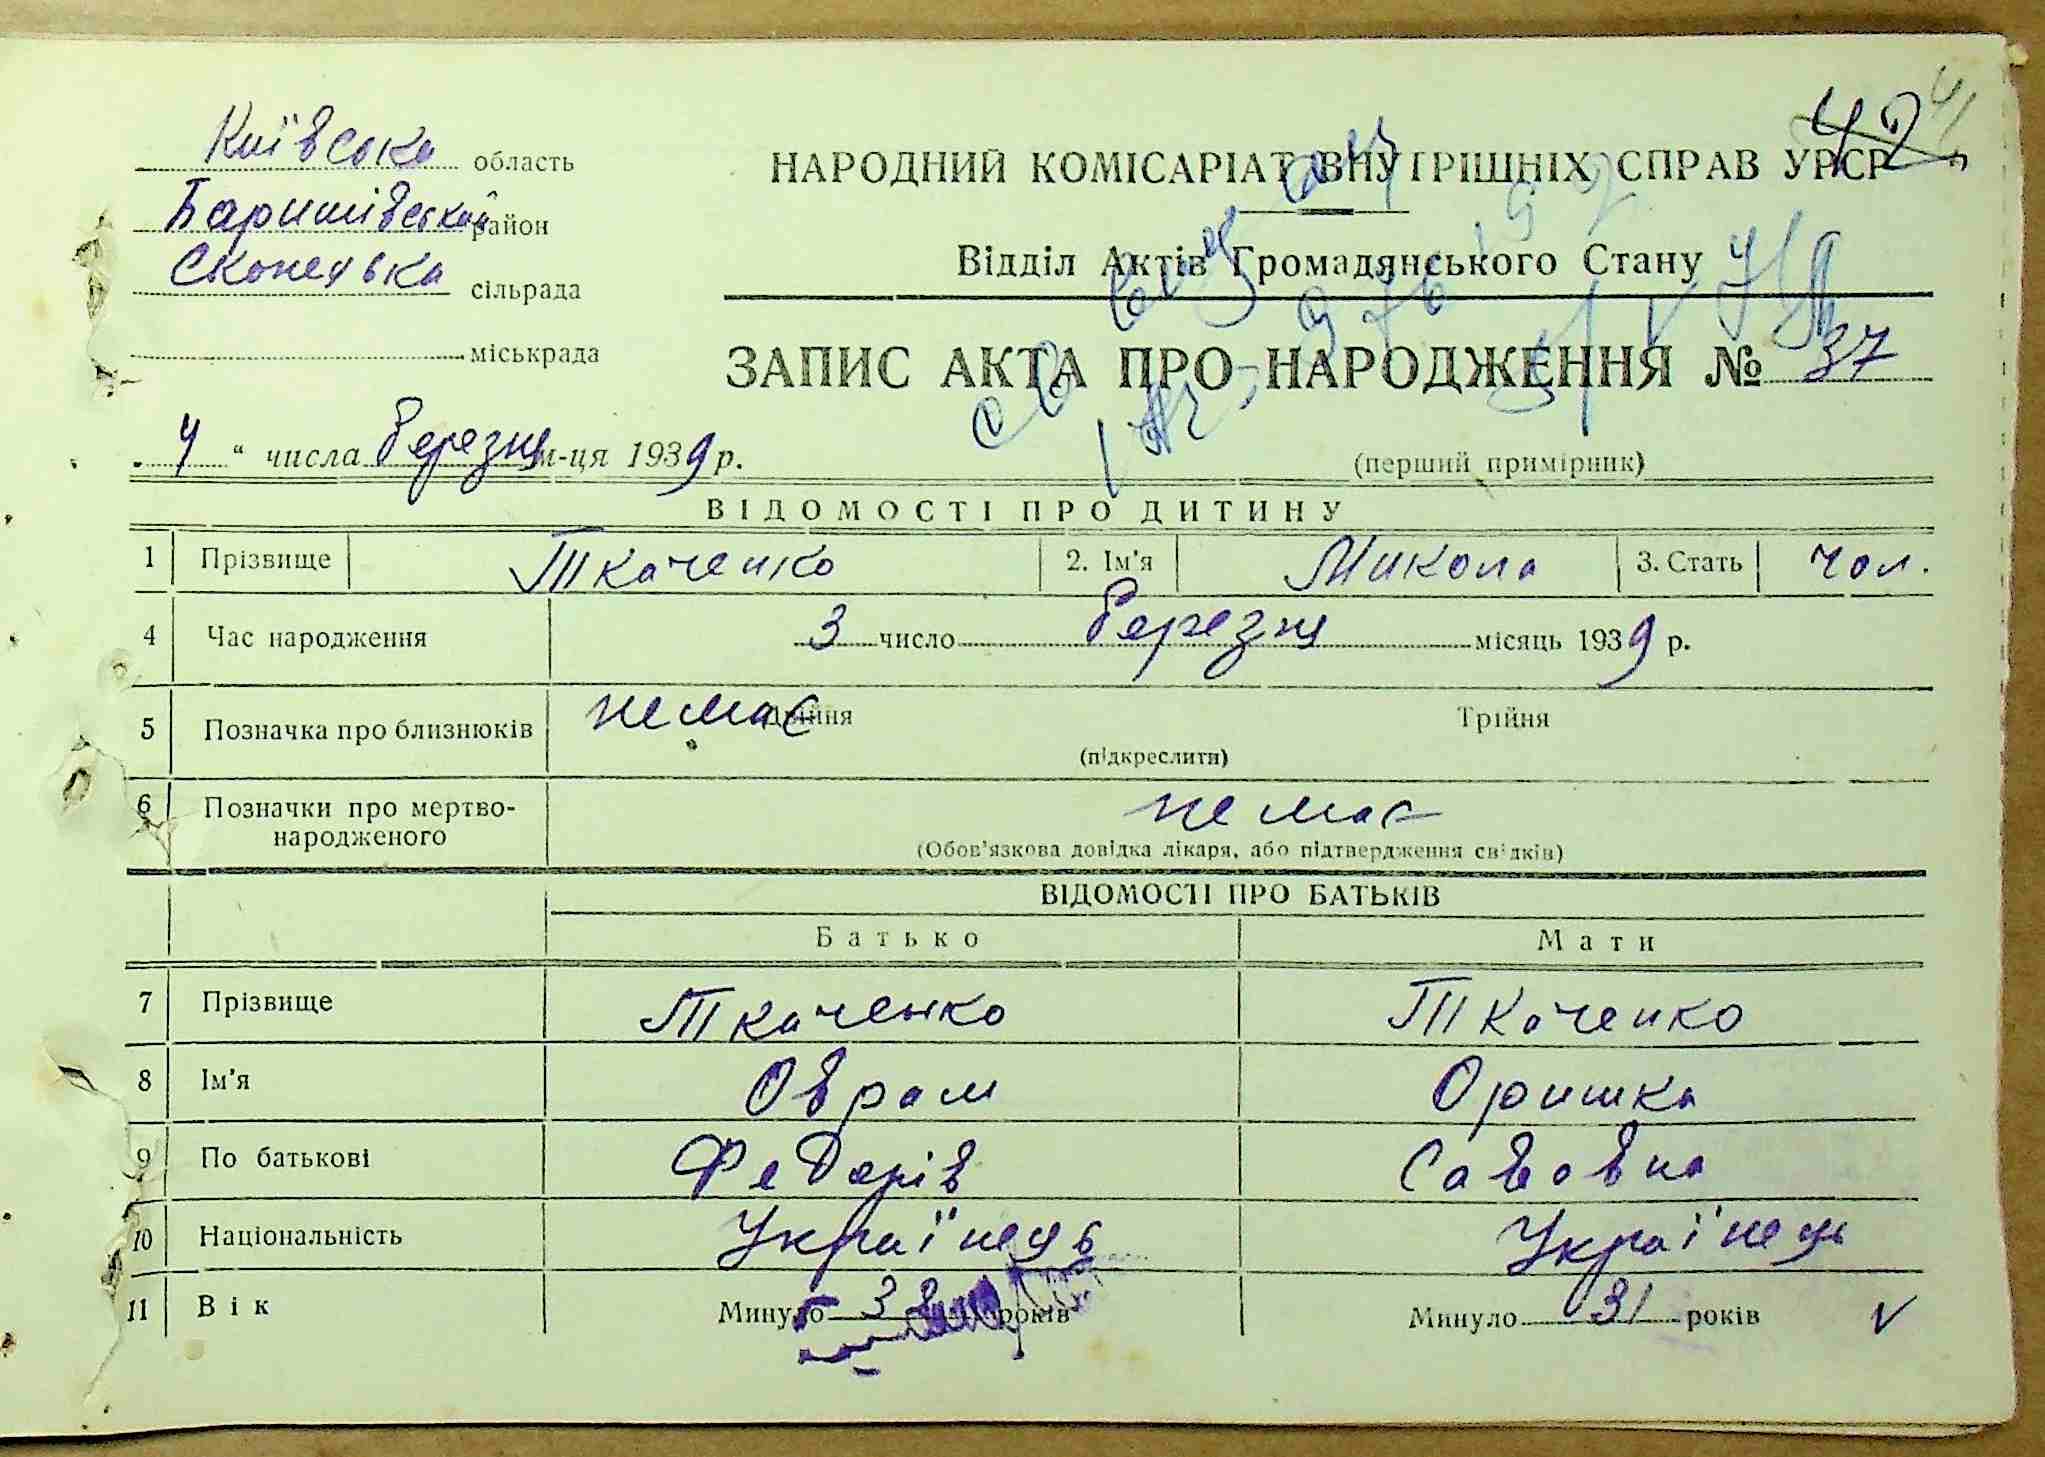 Київська область
Баришівський район
сільрада
міськрада
42
НАРОДНИЙ КОМІСАРІАТ ВНУТРІШНІХ СПРАВ УРСР
Відділ Актів Громадянського Стану
ЗАПИС АКТА ПРО НАРОДЖЕННЯ № 37
„4“ числа березня м-ця 1939 р.
(перший примірник)
ВІДОМОСТІ ПРО ДИТИНУ
1 Прізвище Ткаченко 2. Ім'я Микола 3. Стать чол.
4 Час народження 3 число березня місяць 1939 р.
5 Позначка про близнюків немає Двійня Трійня
(підкреслити)
6 Позначки про мертво-
народженого немає
(Обов'язкова довідка лікаря, або підтвердження свідків)
ВІДОМОСТІ ПРО БАТЬКІВ
Батько Мати
7 Прізвище Ткаченко Ткаченко
8 Ім'я Оврам Оришка
9 По батькові Федорів Савовна
10 Національність Українець Українець
11 Вік Минуло років Минуло 31 років